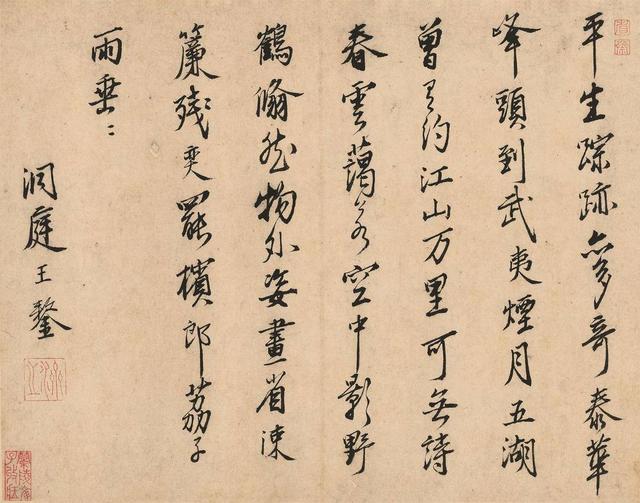 平生踪跡亦多奇泰華
峰頭到武夷煙月五湖
曾有約江山万里可無詩
春雲藹若空中影野
鶴翛然物外姿畫省疎
簾残奕罷檳郎荔子
雨垂〻
洞庭王鏊